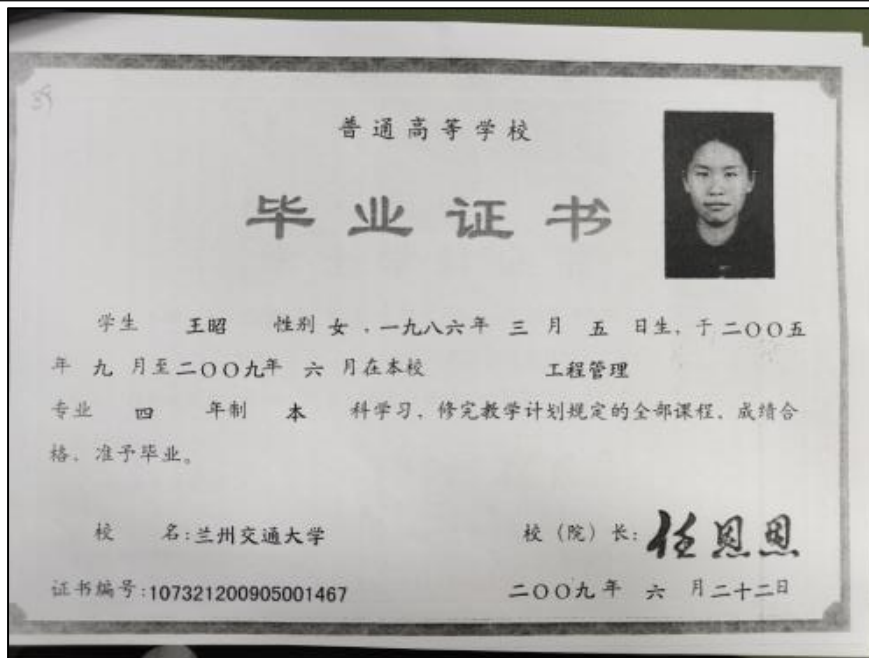 普通高等学校
毕业证书
学生 王昭 性别 女，一九八六年 三 月 五 日生，于二〇〇五
年 九 月至二〇〇九年 六 月在本校 工程管理
专业 四 年制 本 科学习，修完教学计划规定的全部课程，成绩合
格，准予毕业。
校 名：兰州交通大学
校（院）长：任恩恩
证书编号：107321200905001467
二〇〇九年 六 月二十二日